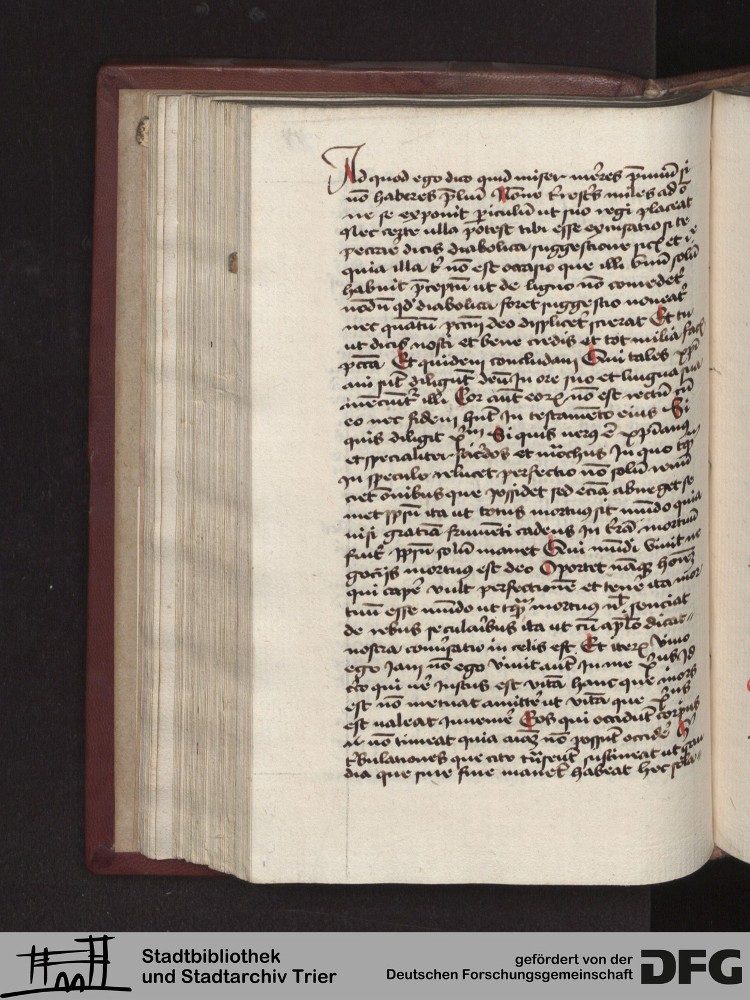 Ad quod ego dico quid miser mereres premium si
no haberes preliu None terrestris miles ad o
ne se exponit periculum ut suo regi placeat
Nec certe ulla potest tibi esse excusatio si te
peccare dicis diabolica suggestione sicut et
quia illa no est occasio que illi unum solu
habuit preceptu ut de ligno no comederet
nodu qd diabolica foret suggestio noverat
nec quatu pccm deo displiceret scierat Et tu
ut dicis nosti et bene credis et tot milia facis
pccta Et quidem concludam Qui tales
ani sut diligut deu In ore suo et lingua sua
illi Cor aut eorum no est rectu cu
eo nec fidem hnt In testameto eius Si
quis diligit Si quis verus e xpianus
et specialiter sacerdos et mochus In quo tqm
in speculo relucet perfectio no solu
ciet omibus que possidet sed ecia abneget se
met ipsu ita ut totus mortuus sit mudo quia
nisi granu frumeti cadens In terra mortuu
fuit ipsu solu manet Qui mudi vivit ne
gociis mortuus est deo Oportet naque home
qui cape vult perfectione et tene ita mor
tuu esse mudo ut tqm mortuus senciat
de rebus secularibus ita ut cu aplo dicat
nostra conversatio in celis est Et iterum vivo
ego Iam no ego vivit aut In me xpus Id
circo qui ver Iustus est vita hanc que mors
est no metuat amittere ut vita que xpus
est valeat Invenire Eos qui occidut corpus
no timeat quia aiam no possut occide
tribulationes que cito transeut sustineat ut gau
dia que sine fine manet habeat hec
Stadtbibliothek
und Stadtarchiv Trier
gefördert von der
Deutschen Forschungsgemeinschaft
DFG